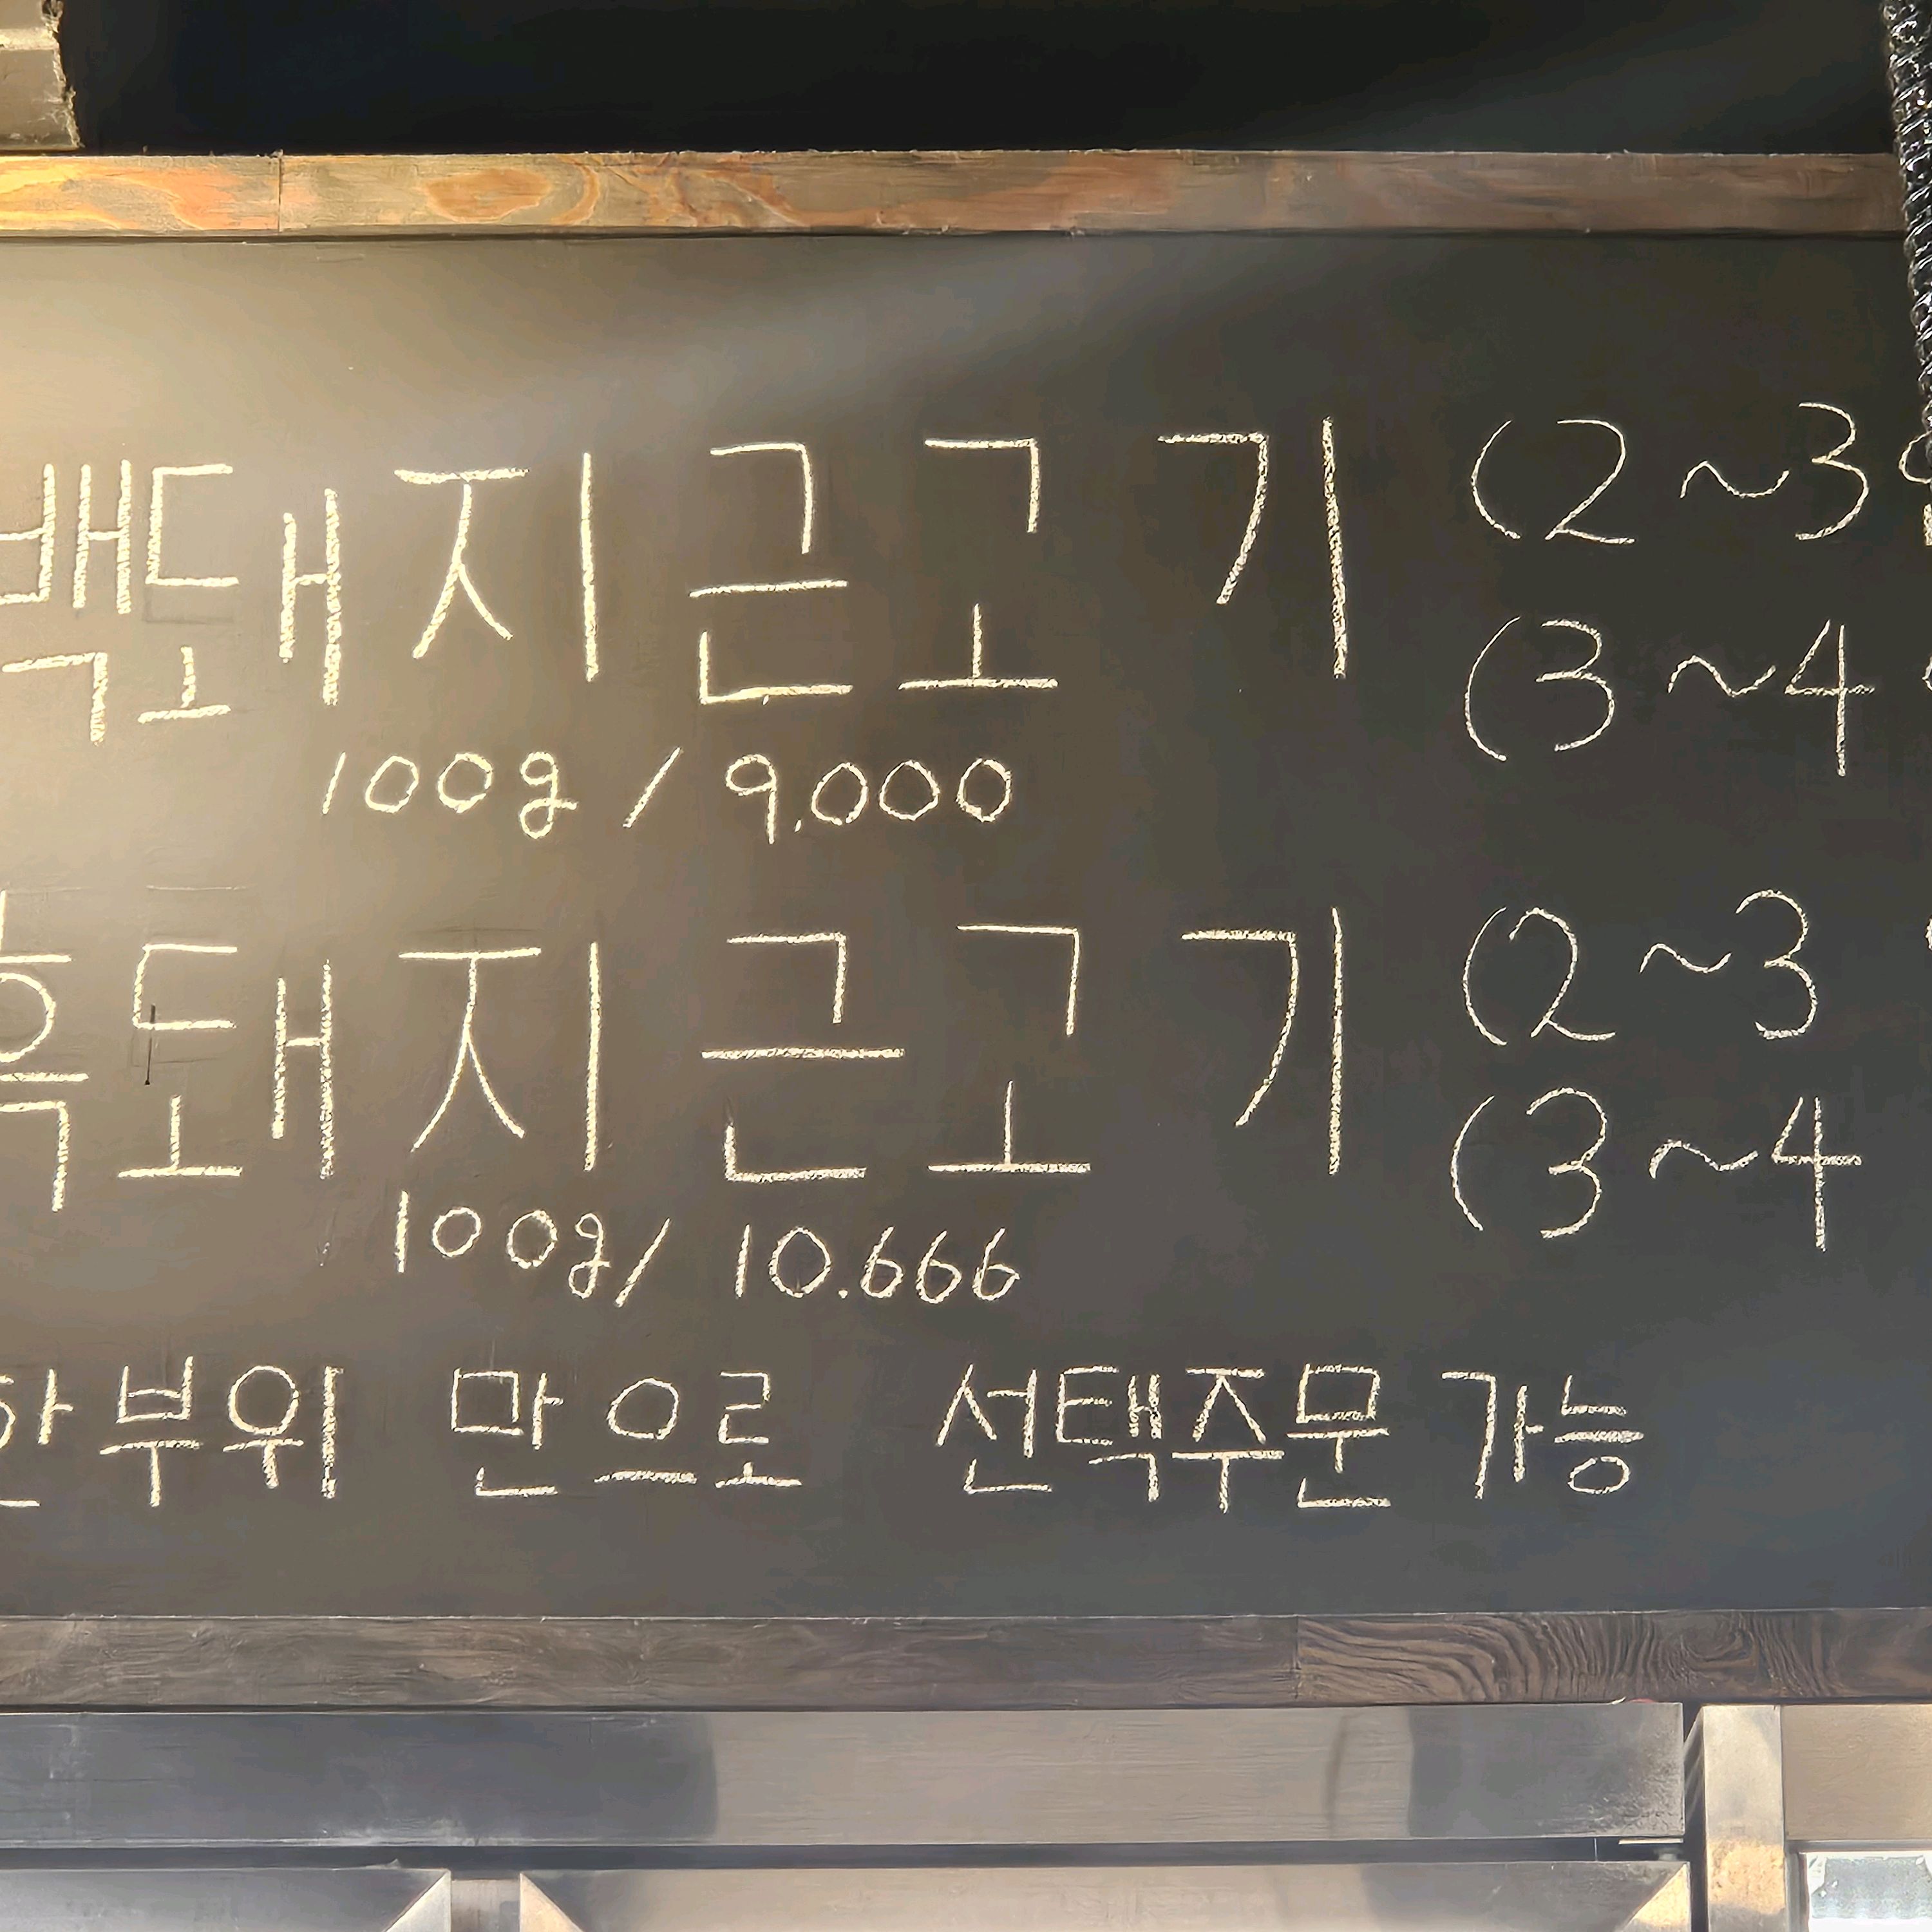 백돼지 근고기 (2~3
(3~4
100g / 9,000
흑돼지 근고기 (2~3
(3~4
100g / 10.666
한부위 만으로 선택주문 가능